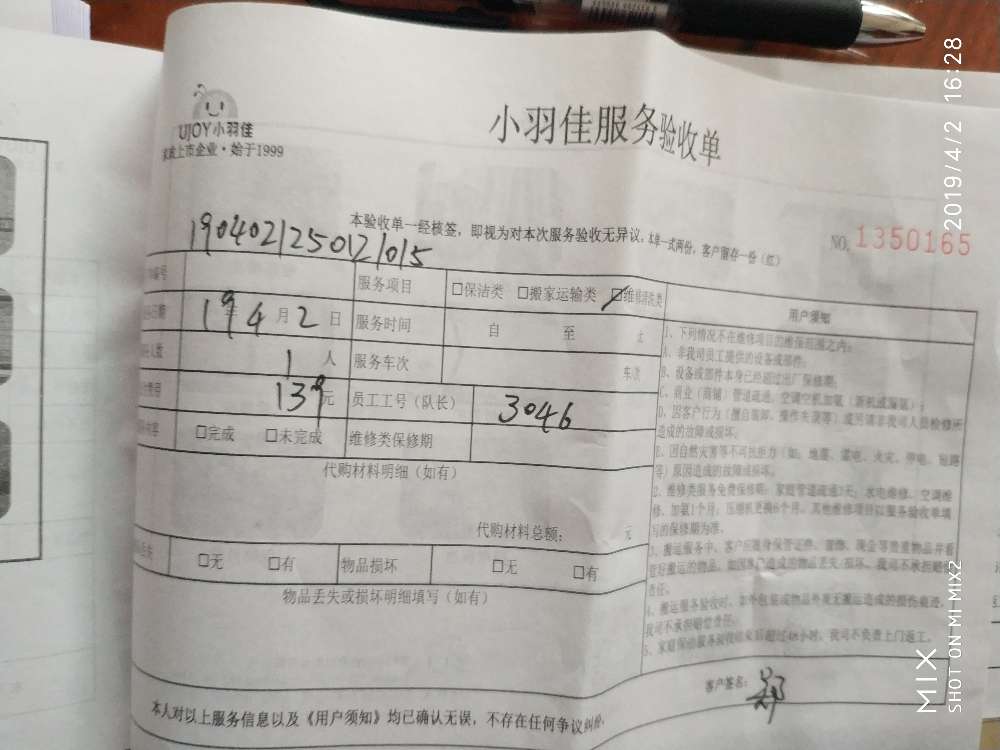 UJOY小羽佳
家政上市企业·始于1999
小羽佳服务验收单
本验收单一经核签，即视为对本次服务验收无异议，本单一式两份，客户留存一份（红）
NO. 1350165
1904021250121015
编号
服务项目 □保洁类 □搬家运输类 ☑维修清洗类
用户须知
日期 19年4月2日 服务时间 自 至 止
人数 1人 服务车次 车次
费用 139元 员工工号（队长） 3046
内容 □完成 □未完成 维修类保修期
代购材料明细（如有）
代购材料总额： 元
丢失 □无 □有 物品损坏 □无 □有
物品丢失或损坏明细填写（如有）
1、下列情况不在维修项目的维保范围之内：
A、非我司员工提供的设备或部件；
B、设备或部件本身已经超过出厂保修期；
C、商业（商铺）管道疏通、空调空机加氟（新机或漏氟）；
D、因客户行为（擅自装卸、操作失误等）或另请非我司人员检修所
造成的故障或损坏；
E、因自然灾害等不可抗拒力（如：地震、雷电、火灾、停电、短路
等）原因造成的故障或损坏。
2、维修类服务免费保修期：家庭管道疏通3天；水电维修、空调维
修、加氟1个月；压缩机更换6个月。其他维修项目以服务验收单填
写的保修期为准。
3、搬运服务中，客户应随身保管证件、首饰、现金等贵重物品并看
管好搬运的物品，如因客户造成的物品丢失、损坏，我司不承担赔偿
责任。
4、搬运服务验收时，如外包装或物品外观无搬运造成的损伤痕迹，
我司不承担赔偿责任。
5、家庭保洁服务验收结束后超过48小时，我司不负责上门返工。
客户签名： 郑
本人对以上服务信息以及《用户须知》均已确认无误，不存在任何争议纠纷。
2019/4/2 16:28
MIX
SHOT ON MI MIX2